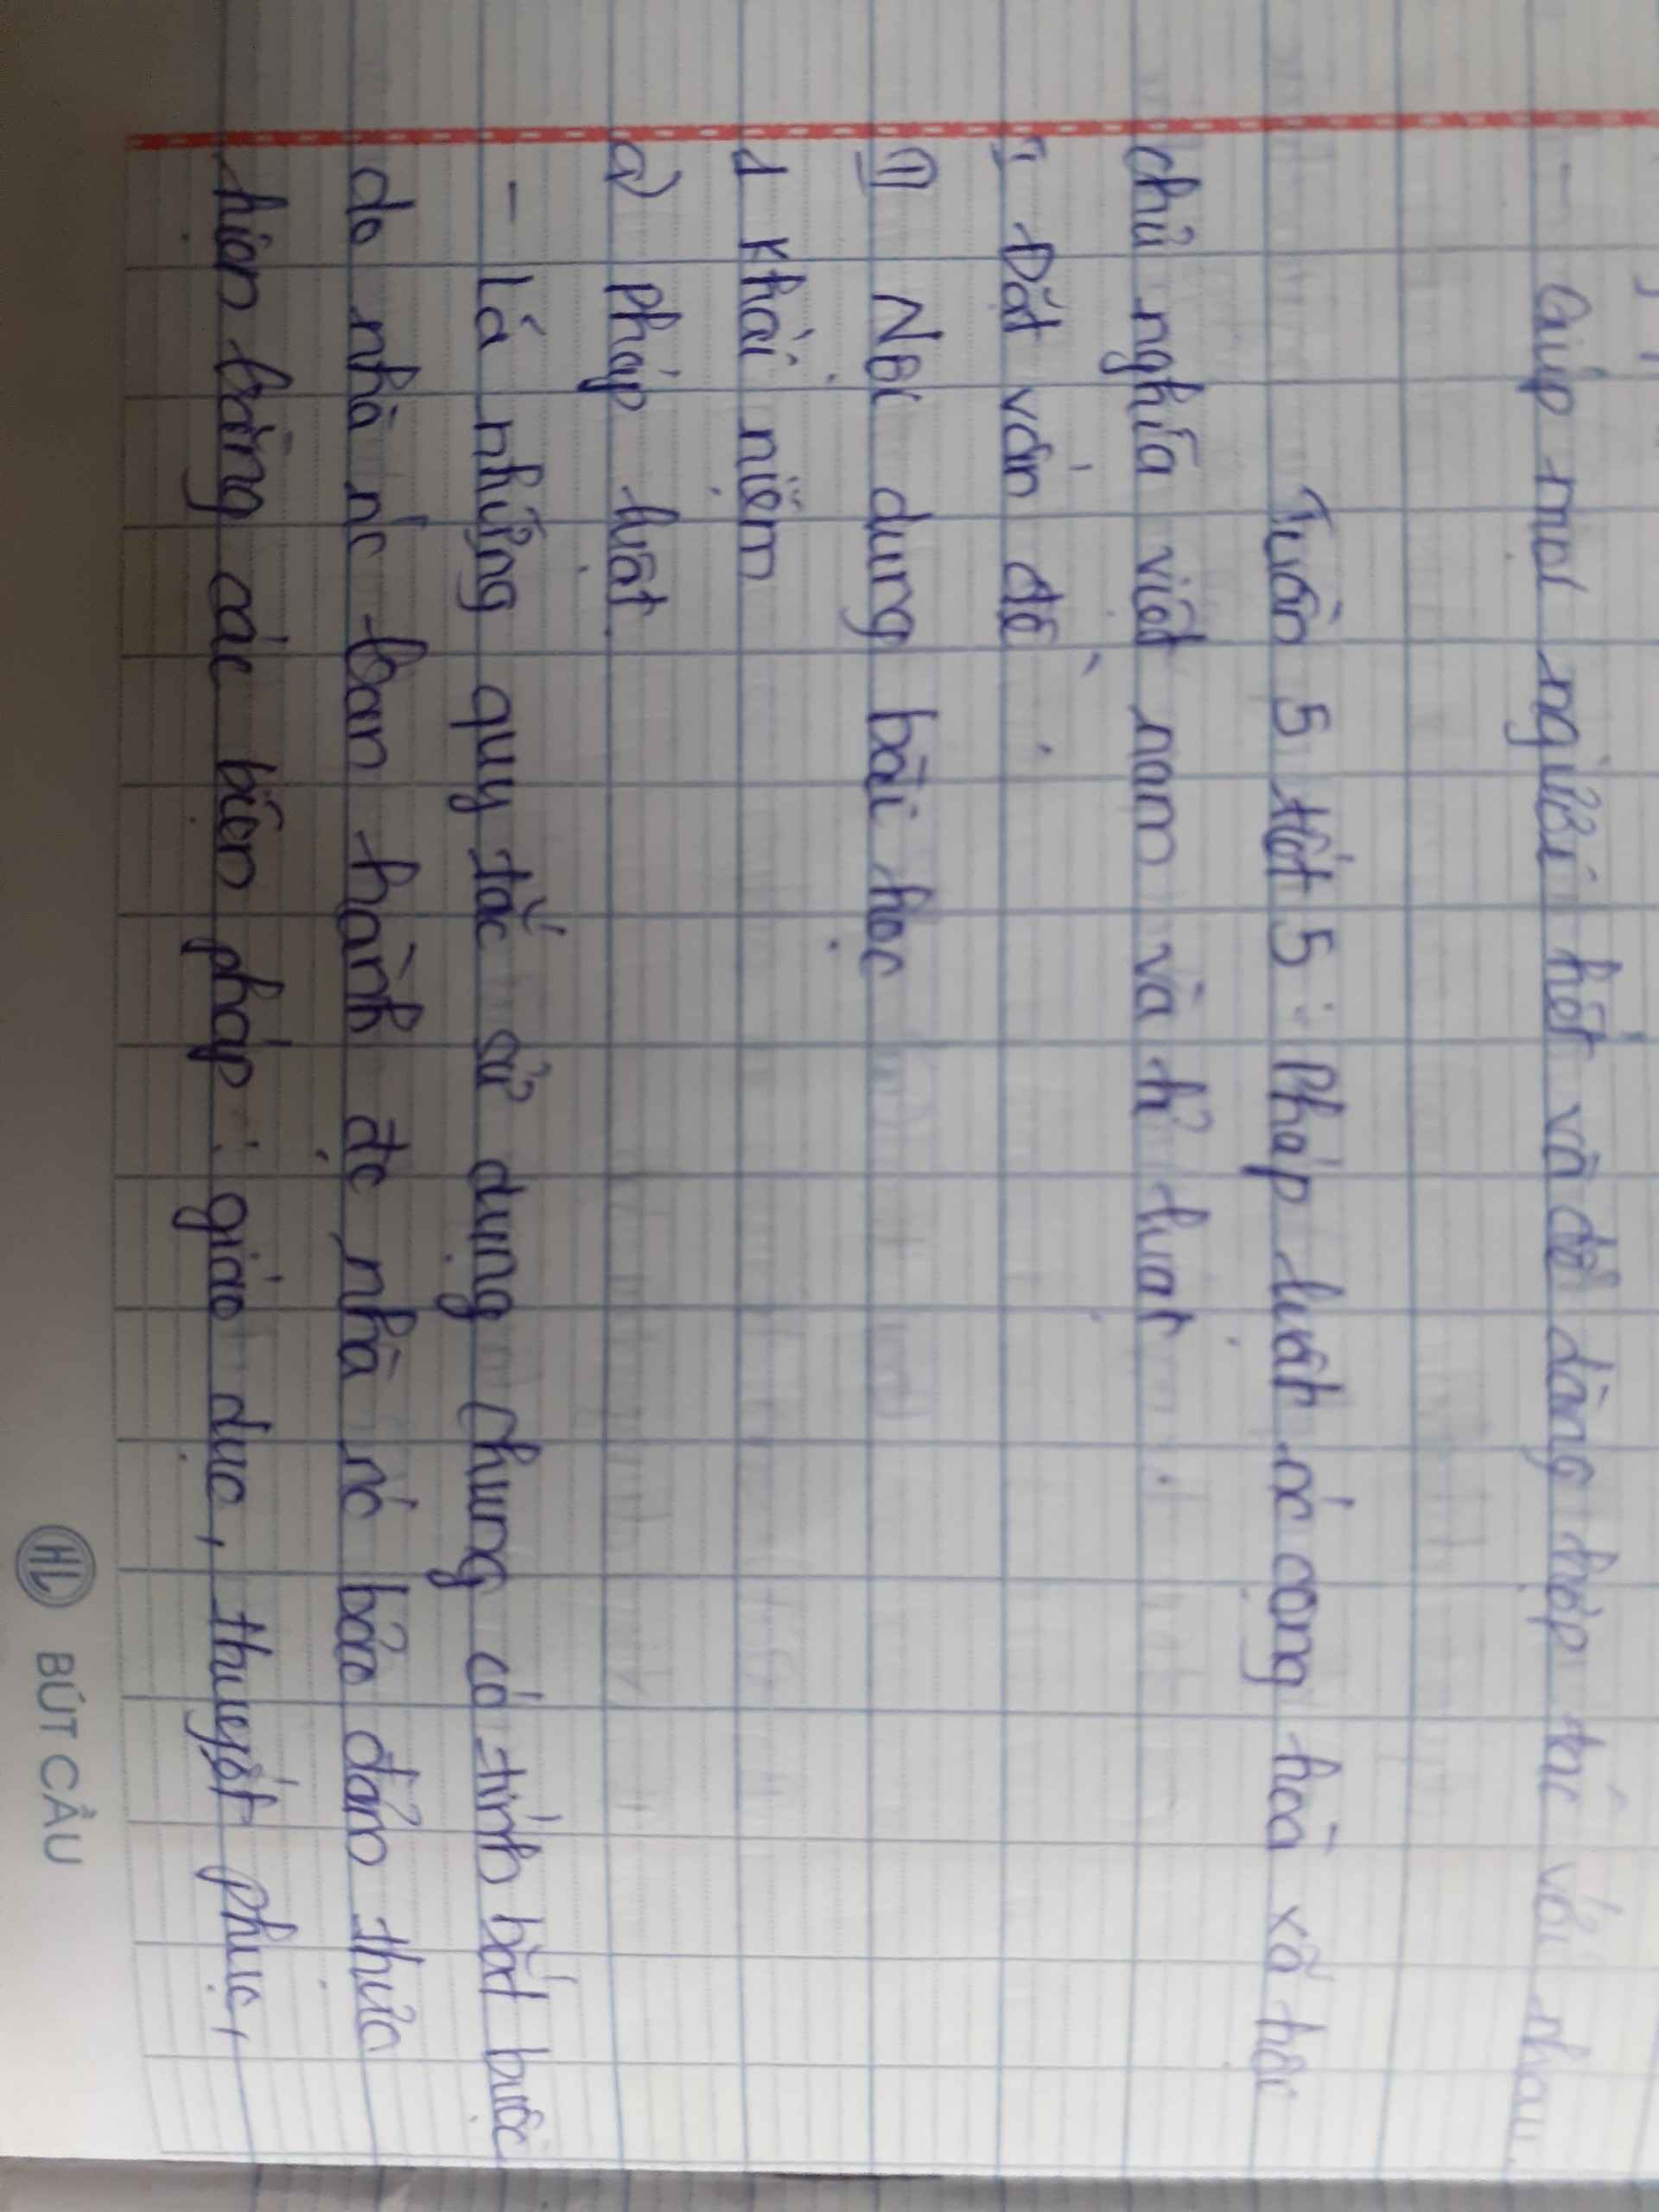 - Giúp mọi người hiểu và dễ dàng hợp tác với nhau
Tuần 5 tiết 5: Pháp luật nc cộng hoà xã hội
chủ nghĩa việt nam và kỉ luật.
I Đặt vấn đề:
II Nội dung bài học
1 Khái niệm
a) Pháp luật
- Là những quy tắc sử dụng chung có tính bắt buộc
do nhà nc ban hành đc nhà nc bảo đảm thực
hiện bằng các biện pháp: giáo dục, thuyết phục,
HL BÚT CẦU